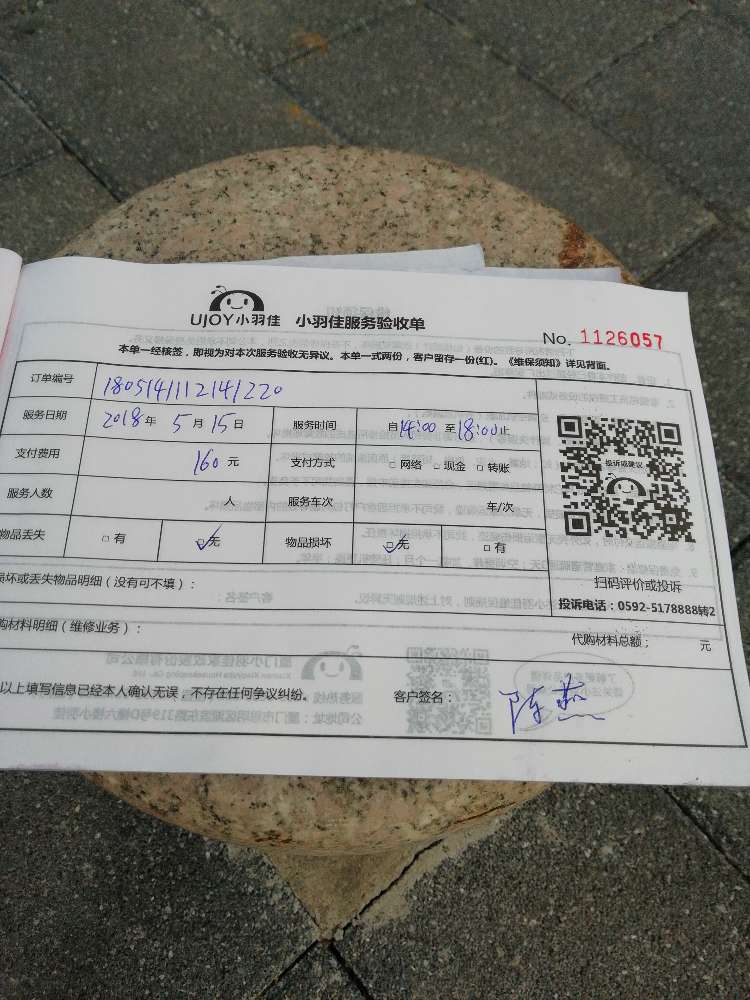 UJOY小羽佳 小羽佳服务验收单
No. 1126057
本单一经核签，即视为对本次服务验收无异议。本单一式两份，客户留存一份(红)。《维保须知》详见背面。
订单编号 180514112141220
服务日期 2018年 5月15日 服务时间 自14:00至18:00止
支付费用 160元 支付方式 □网络 □现金 □转账
服务人数 人 服务车次 车/次
物品丢失 □有 ☑无 物品损坏 ☑无 □有
投诉或建议
扫码评价或投诉
投诉电话：0592-5178888转2
损坏或丢失物品明细（没有可不填）：
购材料明细（维修业务）： 代购材料总额： 元
以上填写信息已经本人确认无误，不存在任何争议纠纷。 客户签名：